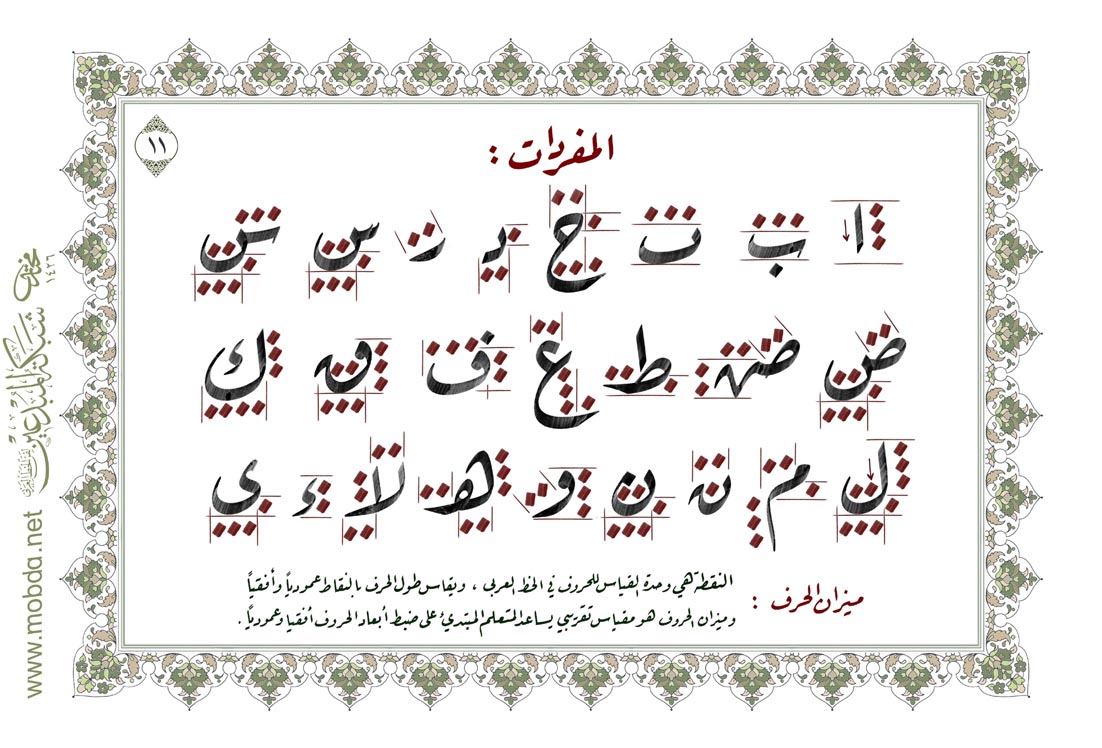 ١١
المفردات :
ا ب ت ج د ر س ش
ص ض ط ع ف ق ك
ل م ن ن و هـ لا ء ي
ميزان الحرف : النقطة هي وحدة القياس للحروف في الخط العربي ، ويقاس طول الحرف بالنقاط عمودياً وأفقياً
وميزان الحروف هو مقياس تقريبي يساعد المتعلم المبتدئ على ضبط أبعاد الحروف أفقيا وعمودياً .
شبكة المبدعين
١٤٢٦
www.mobda.net